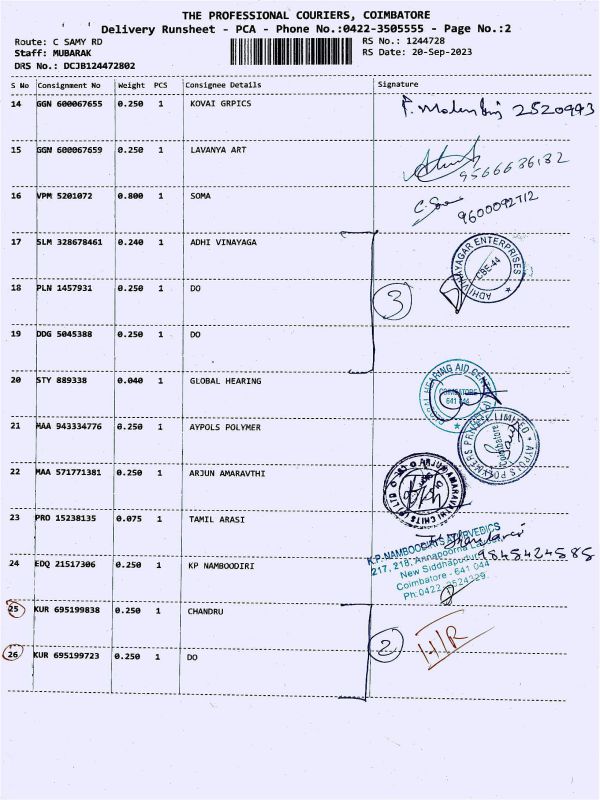 THE PROFESSIONAL COURIERS, COIMBATORE
Delivery Runsheet - PCA - Phone No.:0422-3505555 - Page No.:2
Route: C SAMY RD
RS No.: 1244728
Staff: MUBARAK
RS Date: 20-Sep-2023
DRS No.: DCJB124472802
S No Consignment No Weight PCS Consignee Details Signature
14 GGN 600067655 0.250 1 KOVAI GRPICS 2520993
15 GGN 600067659 0.250 1 LAVANYA ART 9566636132
16 VPM 5201072 0.800 1 SOMA 9600092712
17 SLM 328678461 0.240 1 ADHI VINAYAGA
ADHIVINAYAGAR ENTERPRISES
CBE-44
18 PLN 1457931 0.250 1 DO
3
19 DDG 5045388 0.250 1 DO
20 STY 889338 0.040 1 GLOBAL HEARING
HEARING AID
COIMBATORE
641 044
21 MAA 943334776 0.250 1 AYPOLS POLYMER
AYPOLS POLYMERS PRIVATE LIMITED
Coimbatore
22 MAA 571771381 0.250 1 ARJUN AMARAVTHI
ARJUN AMARAVATHI CHITS (P) LTD
23 PRO 15238135 0.075 1 TAMIL ARASI
9845424585
24 EDQ 21517306 0.250 1 KP NAMBOODIRI
K.P. NAMBOODIRI'S AYURVEDICS
217, 218, Annapoorna
New Siddhapudur
Coimbatore - 641 044
Ph:0422
25 KUR 695199838 0.250 1 CHANDRU
2
HR
26 KUR 695199723 0.250 1 DO